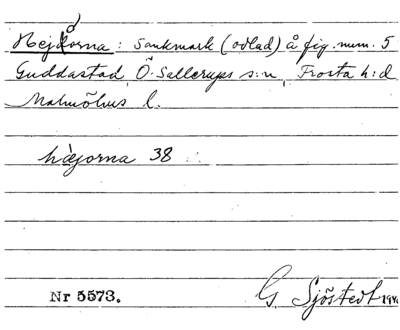 Hejdorna: Sankmark (odlad) å fig. num. 5
Guddastad, Ö. Sallerups s:n, Frosta h:d
Malmöhus l.
hä̀jorna 38
Nr 5573.
G. Sjöstedt